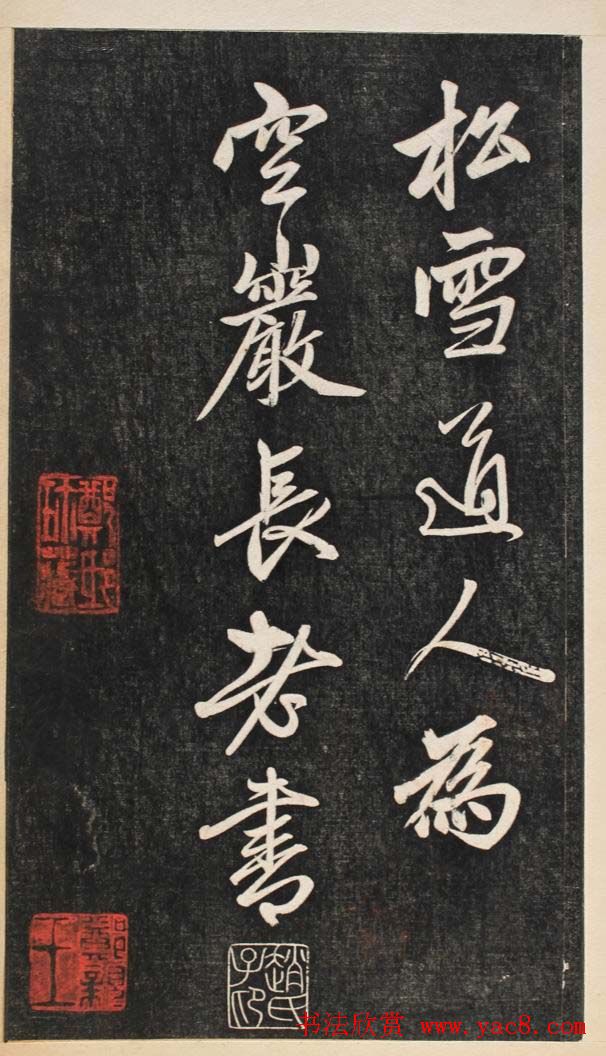 松雪道人為
空巖長老書
趙氏子昂
書法欣賞 www.yac8.com